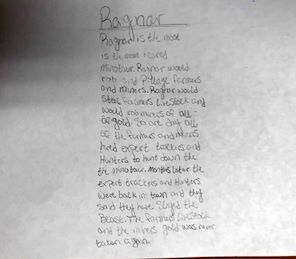 Ragnar
Ragnar is the most
is the most feared
Minotaur. Ragnar would
rob and Pillage farmers
and miners. Ragnar would
steal Farmers Livestock and
would rob miners of all
of gold. So one day all
of the farmers and miners
hired expert trackers and
Hunters to hunt down the
the minotaur. Months later the
expert trackers and Hunters
were back in town and they
said they have Slayed the
Beast. The farmers Livestock
and the miners gold was never
taken again.